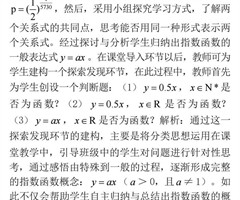 p=(1/2)^5730，然后，采用小组探究学习方式，了解两
个关系式的共同点，思考能否用同一种形式表示两
个关系式。经过探讨与分析学生归纳出指数函数的
一般表达式 y=ax。在课堂导入环节以后，教师可为
学生建构一个探索发现环节，在此过程中，教师首先
为学生创设一个判断题：（1） y=0.5x，x∈N*是
否为函数？（2） y=0.5x，x∈R 是否为函数？
（3） y=ax，x∈R 是否为函数？解析：通过这一
探索发现环节的建构，主要是将分类思想运用在课
堂教学中，引导班级中的学生对问题进行针对性思
考，通过感悟由特殊到一般的过程，逐渐形成完整
的指数函数概念：y=ax（a＞0，且a≠1）。如
此不仅会帮助学生自主归纳与总结出指数函数的概